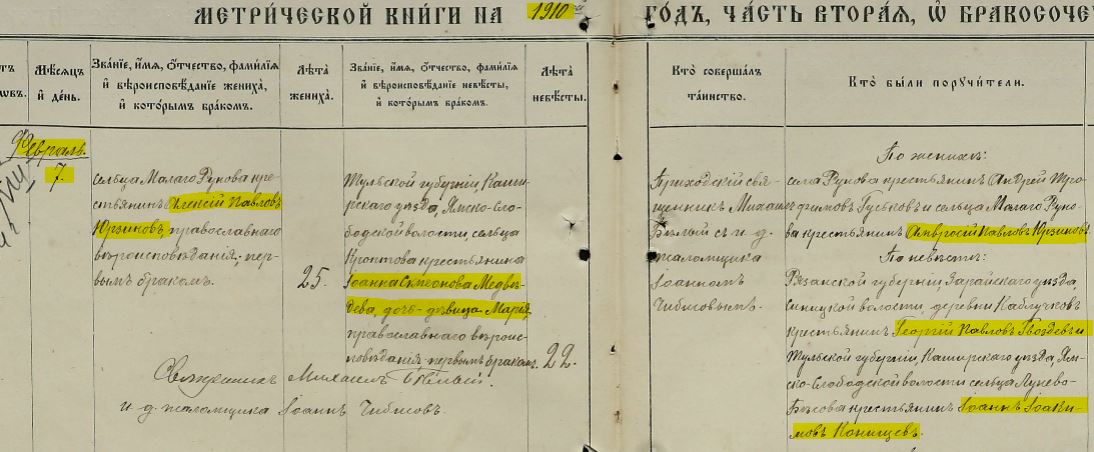 МЕТРИ́ЧЕСКОЙ КНИ́ГИ НА 1910й ГО́ДЪ, ЧА́СТЬ ВТОРА́Я, Ѡ҆ БРАКОСОЧЕ
Мѣ́сяцъ
и҆ де́нь.
Зва́нїе, и҆́мя, ѻ҆́тчество, фами́лїя
и҆ вѣроисповѣ́данїе жениха̀,
и҆ кото́рымъ бра́комъ.
Лѣ́та
жениха̀.
Зва́нїе, и҆́мя, ѻ҆́тчество, фами́лїя
и҆ вѣроисповѣ́данїе невѣ́сты,
и҆ кото́рымъ бра́комъ.
Лѣ́та
невѣ́сты.
Кто̀ соверша́лъ
та́инство.
Кто̀ бы́ли порꙋчи́тели.
Февраль.
7.
сельца Малаго Рунова кре-
стьянинъ Алексій Павловъ
Юрзиновъ, православнаго
вѣроисповѣданія, пер-
вымъ бракомъ.
25.
Тульской губерніи Каши-
рскаго уѣзда, Ямско-Сло-
бодской волости, сельца
крестьянина
Іоанна Симеонова Медвѣ-
дева, дочь-дѣвица Марія,
православнаго вѣроис-
повѣданія, первымъ бракомъ.
22.
Священникъ Михаилъ Бѣлый.
и. д. псаломщика Іоаннъ Чибисовъ.
Приходскій свя-
щенникъ Михаилъ
Бѣлый съ и. д.
псаломщика
Іоанномъ
Чибисовымъ.
По женихѣ:
села Рунова крестьянинъ Андрей Тро-
фимовъ Гуськовъ и сельца Малаго Руно-
ва крестьянинъ Амвросій Павловъ Юрзиновъ.
По невѣстѣ:
Рязанской губерніи Зарайскаго уѣзда,
волости, деревни
крестьянинъ Георгій Павловъ Гвоздевъ и
Тульской губерніи, Каширскаго уѣзда, Ям-
ско-Слободской волости сельца Лунево-
крестьянинъ Іоаннъ Іоаки-
мовъ Конищевъ.